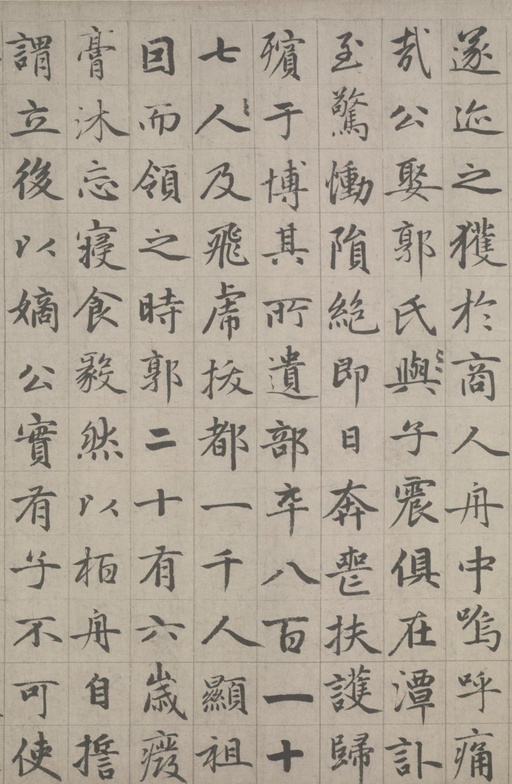 遂迹之獲於商人舟中嗚呼痛
哉公娶郭氏與子震俱在潭訃
至驚慟隕絶即日奔喪扶護歸
殯于博其所遺部卒八百一十
七人及飛虎拔都一千人顯祖
曰而領之時郭二十有六歲癈
膏沐忘寝食毅然以柏舟自誓
謂立後以嫡公實有子不可使